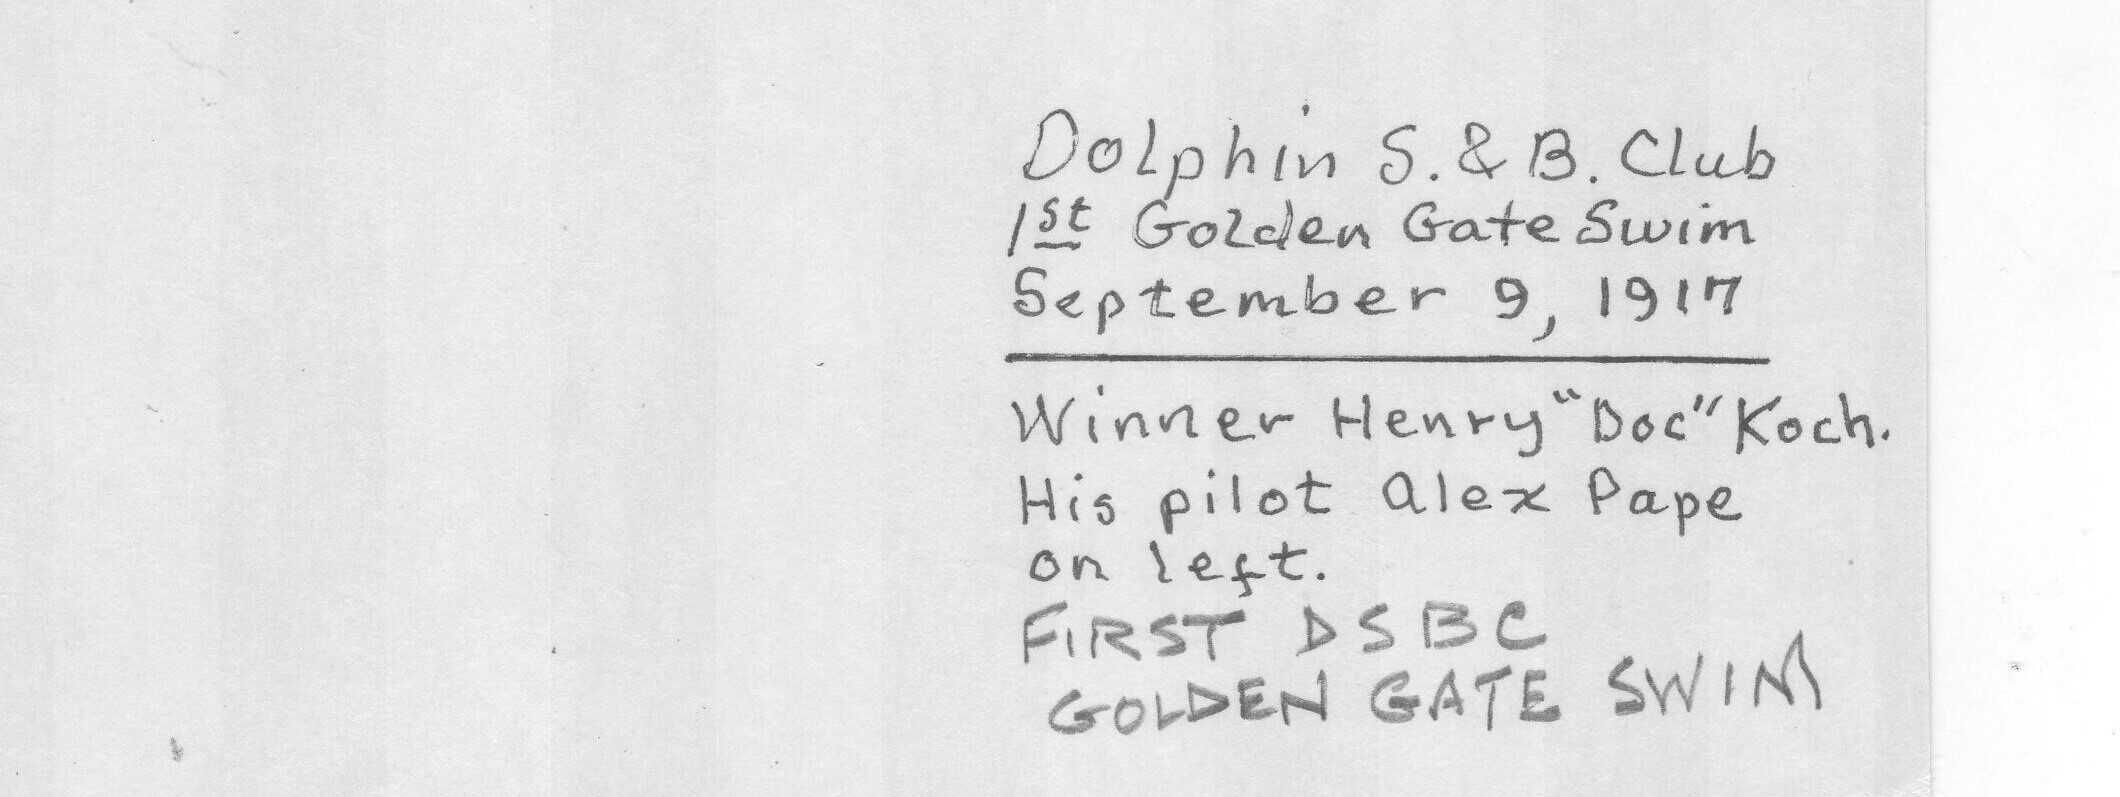 Dolphin S. & B. Club
1st Golden Gate Swim
September 9, 1917
Winner Henry "Doc" Koch.
His pilot Alex Pape
on left.
FIRST DSBC
GOLDEN GATE SWIM